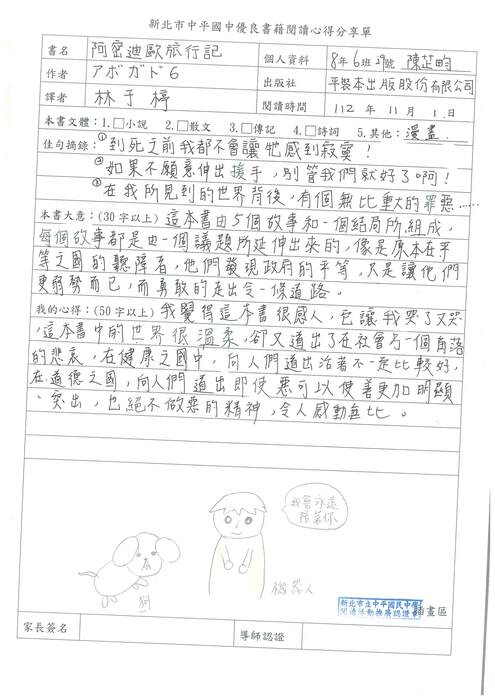 新北市中平國中優良書籍閱讀心得分享單
書名 阿密迪歐旅行記 個人資料 8年6班29號 陳芷昀
作者 アボガド6 出版社 平裝本出版股份有限公司
譯者 林于楟 閱讀時間 112 年 11 月 1 日
本書文體：1.□小說 2.□散文 3.□傳記 4.□詩詞 5.其他：漫畫.
佳句摘錄：①到死之前我都不會讓牠感到寂寞！
②如果不願意伸出援手，別管我們就好了啊！
③在我所見到的世界背後，有個無比重大的罪惡……
本書大意：(30字以上)這本書由5個故事和一個結局所組成，
每個故事都是由一個議題所延伸出來的，像是原本在平
等之國的聽障者，他們發現政府的平等，只是讓他們
更弱勢而已，而勇敢的走出令一條道路。
我的心得：(50字以上)我覺得這本書很感人，它讓我哭了又哭
，這本書中的世界很溫柔，卻又道出了在社會另一個角落
的悲哀，在健康之國中，向人們道出活著不一定比較好，
在道德之國，向人們道出即使惡可以使善更加明顯
、突出，也絕不做惡的精神，令人感動無比。
我會永遠
陪著你
狗
機器人
新北市立中平國民中學
閱讀活動推廣認證章
插畫區
家長簽名 導師認證